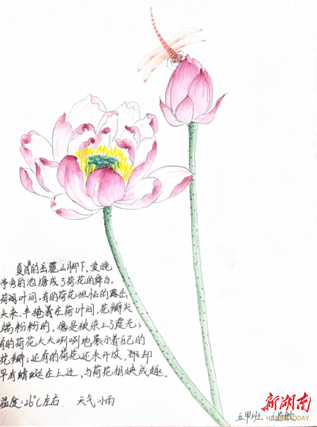 夏浅的岳麓山脚下,爱晚
亭旁的池塘成了荷花的舞台。
荷鸣叶间,有的荷花胆怯的露出
头来,半掩着在荷叶间,花瓣尖
端粉粉的,像是被染上了霞光;
有的荷花大大咧咧地展示着自己的
花瓣;还有的荷花还未开放,那却
早有蜻蜓在上边,与荷花相映成趣。
温度:26℃左右 天气:小雨
五甲班
新湖南
HUNAN TODAY